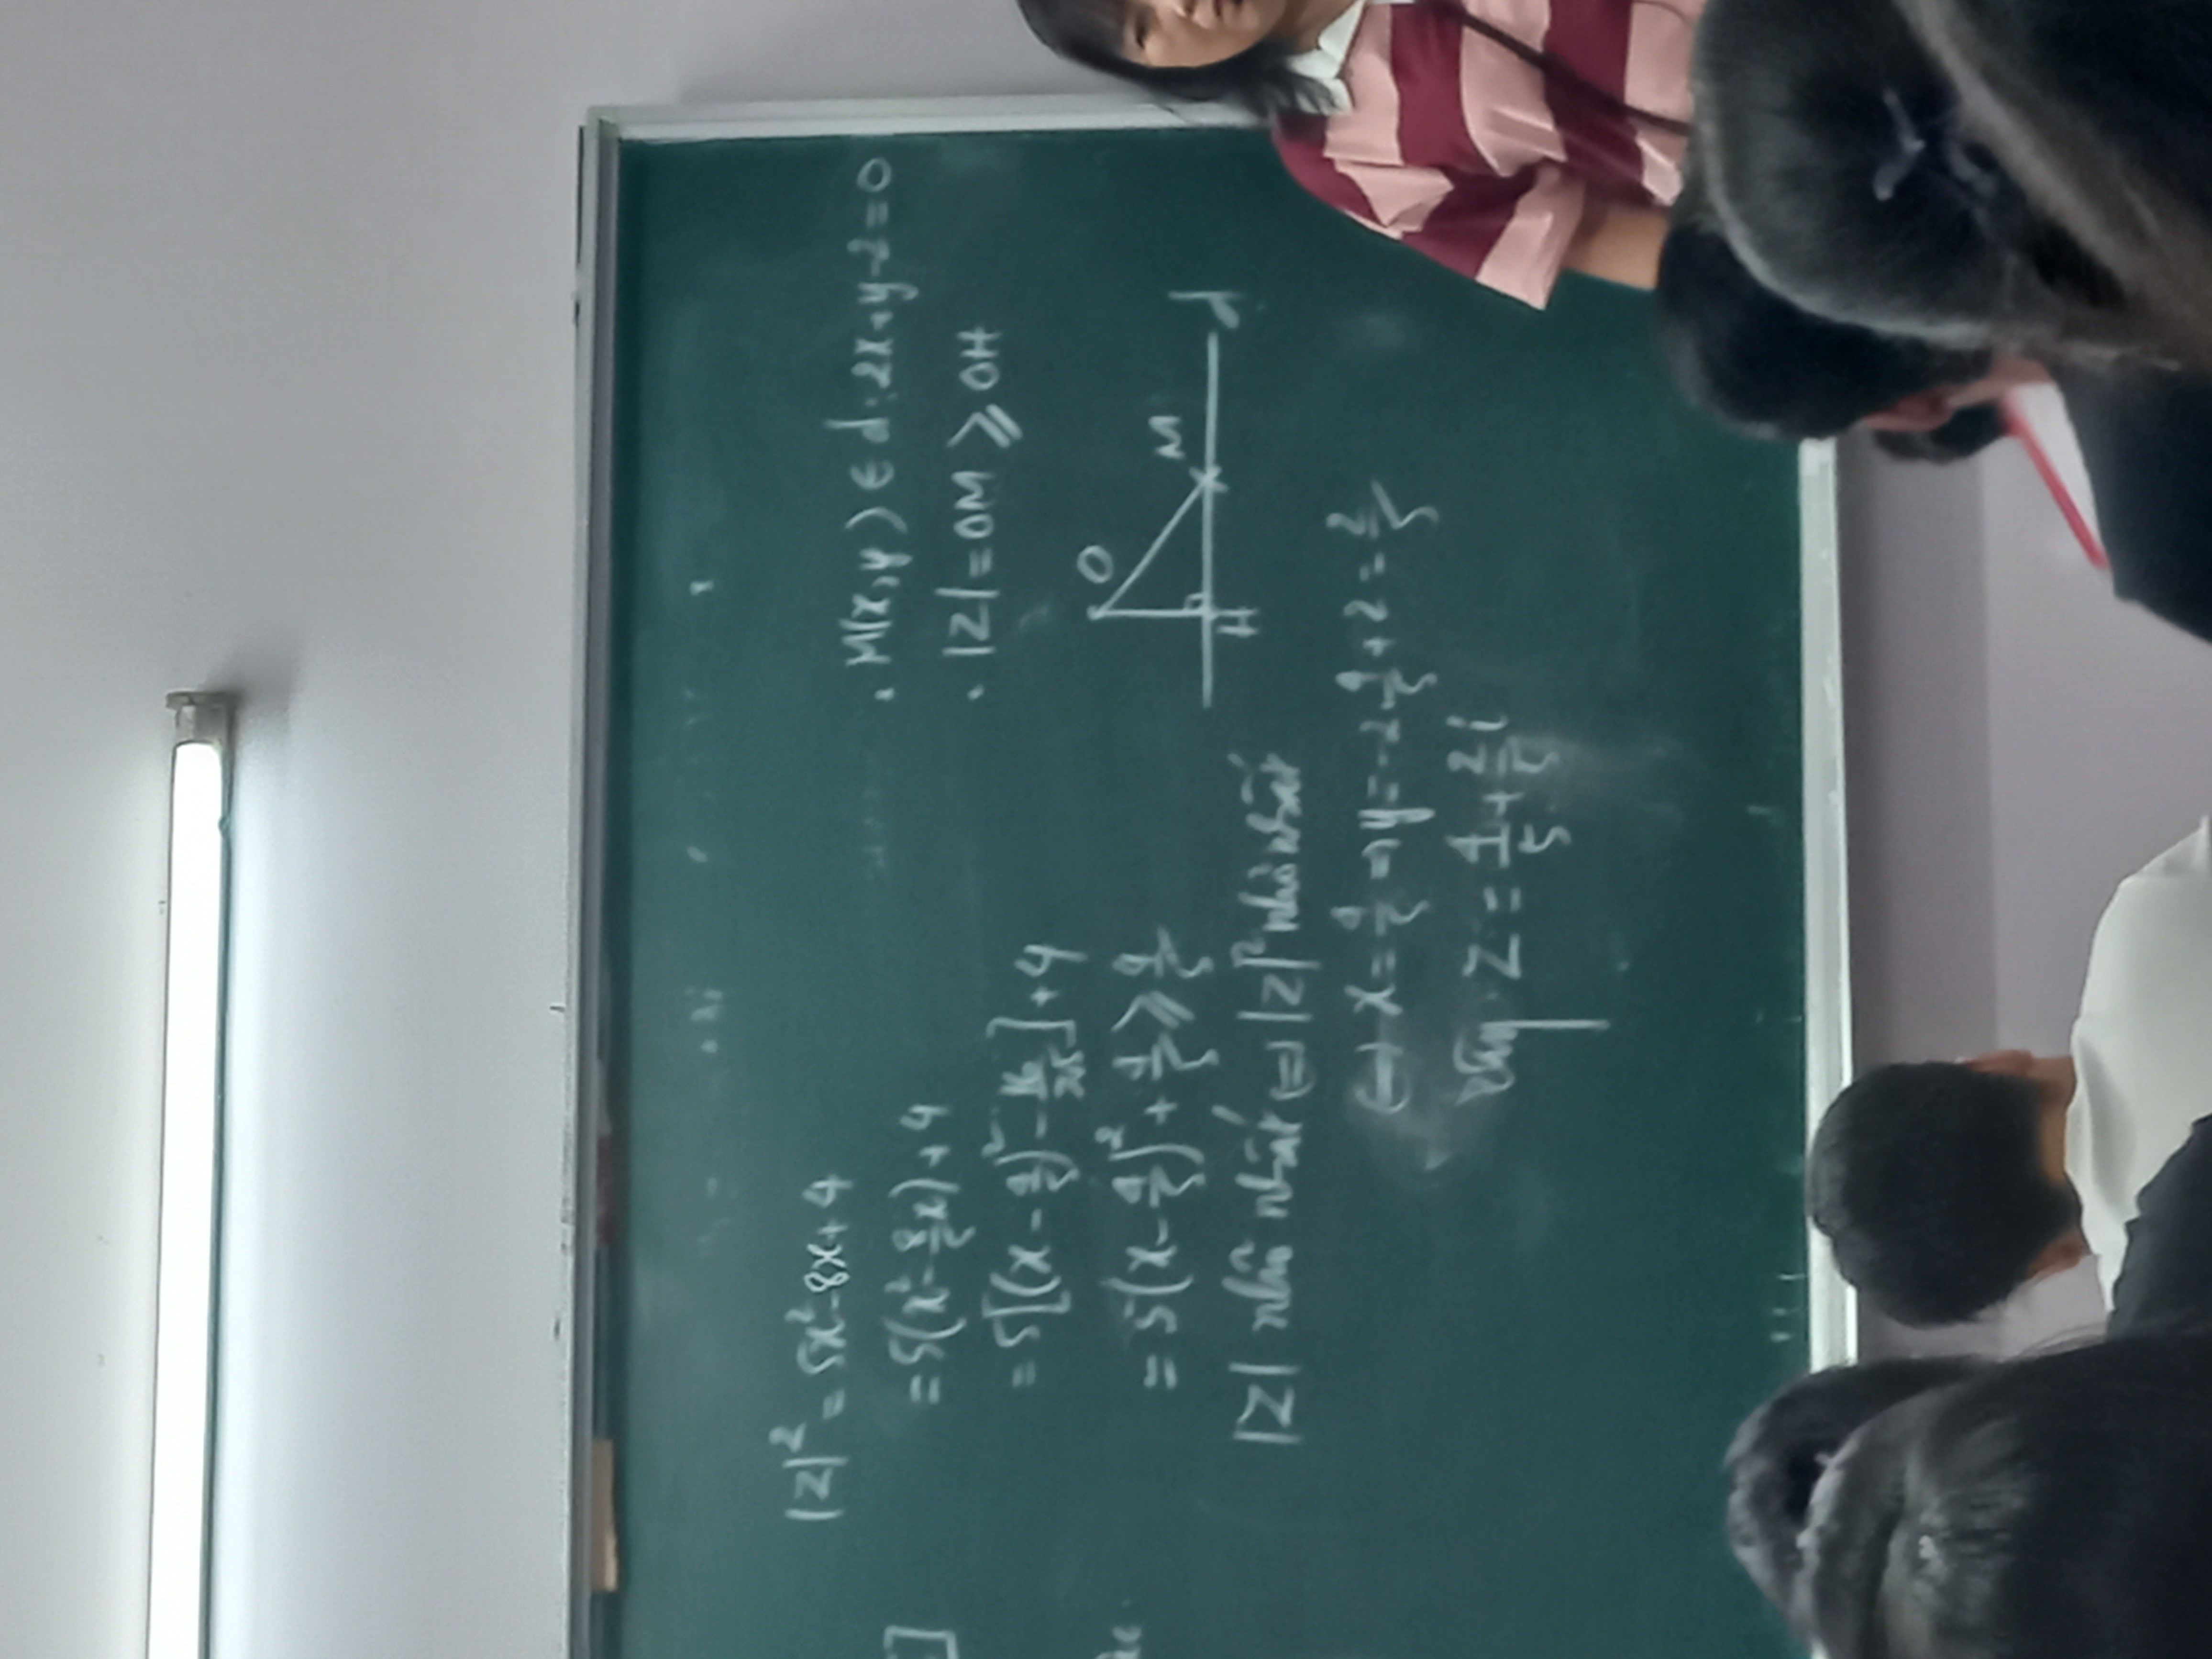 |z|² = 5x² - 8x + 4
= 5(x² - 8/5 x) + 4
= 5[(x - 4/5)² - 16/25] + 4
= 5(x - 4/5)² + 4/5 ⩾ 4/5
|z| nhỏ nhất ⇔ |z|² nhỏ nhất
⇔ x = 4/5 ⇒ y = -2.4/5 + 2 = 2/5
Vậy z = 4/5 + 2/5 i
. M(x, y) ∈ d: 2x + y - 2 = 0
. |z| = OM ⩾ OH
O
M
H
d